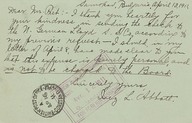 Samokov, Bulgaria, April 12, 1911.
My dear Mr. Peet:- I thank you heartily for
your kindness in sending the check to
the N. German Lloyd S. S. Co., according to
my previous request. I should in my
letter of April 8 have made clear to you
that this expense is purely personal and
is not to be charged to the Board
Sincerely yours,
Inez L. Abbott.